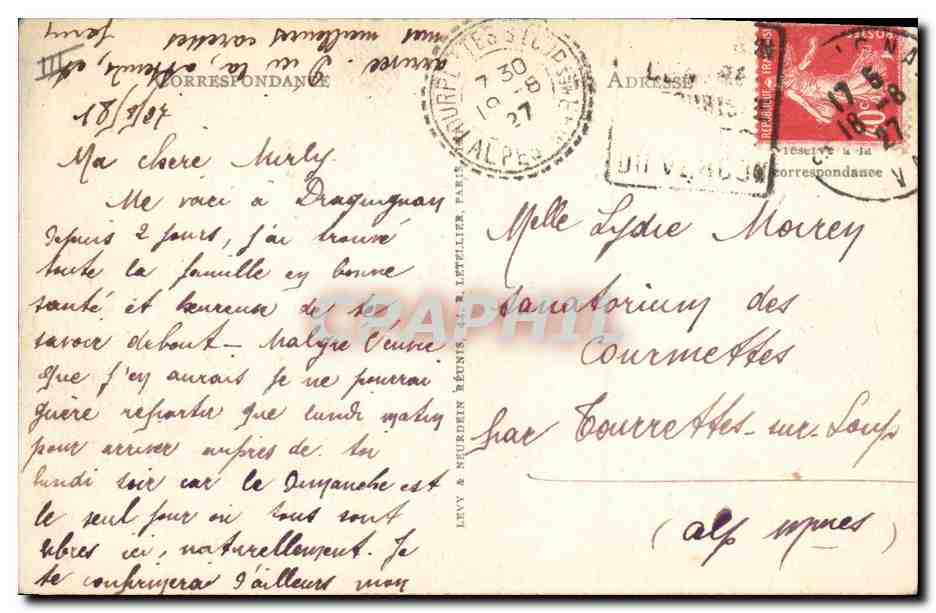 CORRESPONDANCE
18/8/27
Ma chère Mirly
Me voici à Draguignan
depuis 2 jours, j'ai trouvé
toute la famille en bonne
santé et heureuse de te
savoir debout - Malgré l'envie
que j'en aurais je ne pourrai
guère repartir que lundi matin
pour arriver auprès de toi
lundi soir car le Dimanche est
le seul jour où tous sont
libres ici, naturellement. Je
te confirmerai d'ailleurs mon
arrivée. D'ici là, affectés, et
mes meilleures caresses
Jemy
III
LEVY & NEURDEIN RÉUNIS, 44, R. LETELLIER, PARIS
TOURRETTES S LOUP
ALPES MMES
7 30
19 - 8
27
ADRESSE
DU VERDON
REPUBLIQUE FRANÇAISE
POSTES
17
18 - 8
27
réservé à la
correspondance
Melle Lydie Moirey
sanatorium des
Courmettes
par Tourrettes-sur-Loup
(alp mmes)
CPAPHIL